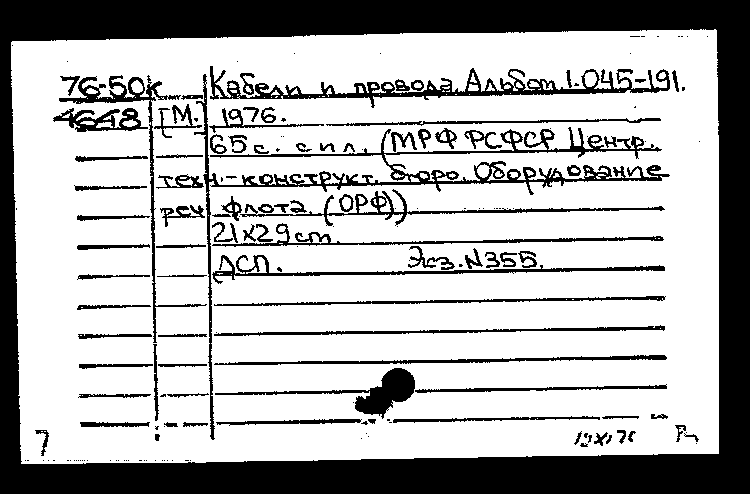 76-50к Кабели и провода. Альбом 1.045-191.
4648 [М.] 1976.
65 с. с ил. (МРФ РСФСР Центр.
техн.-конструкт. бюро. Оборудование
реч. флота. (ОРФ))
21х29 cm.
ДСП. Экз. N355.
7